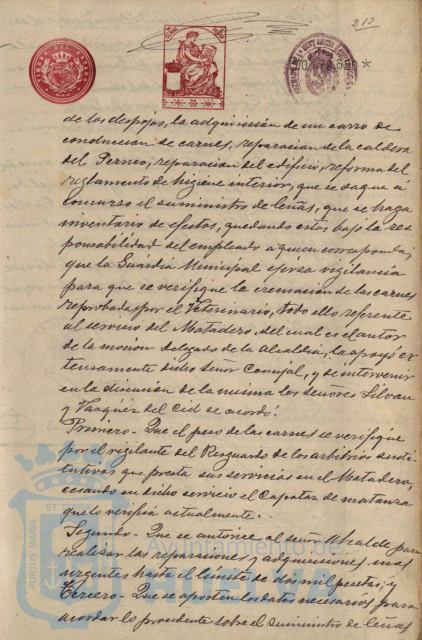 213
TIMBRE DEL ESTADO
0.070.650*
de los despojos, la adquisición de un carro de
conducción de carnes, reparación de la caldera
del Perneo, reparación del edificio, reforma del
reglamento de higiene interior, que se saque á
concurso el suministro de leñas, que se haga
inventario de efectos, quedando estos bajo la res
ponsabilidad del empleado a quien corresponda;
que la Guardia Municipal ejerza vigilancia
para que se verifique la cremación de las carnes
reprobadas por el Veterinario, todo ello referente
al servicio del Matadero, del cual es el autor
de la moción delegado de la Alcaldía, la apoyó ex
tensamente dicho Señor Concejal, y de intervenir
en la discusión de la misma los señores Silvan
y Vazquez del Cid se acordó:
Primero- Que el peso de las carnes se verifique
por el vigilante del Resguardo de los arbitrios susti
tutivos que presta sus servicios en el Matadero,
cesando en dicho servicio el Capataz de matanza
que lo verifica actualmente.
Segundo- Que se autorice al señor Alcalde para
realizar las reparaciones y adquisiciones mas
urgentes hasta el límite de dos mil pesetas; y
Tercero- Que se aporten los datos necesarios para
acordar lo procedente sobre el suministro de leñas
Ayuntamiento de
PORTUS MARIS
ET TE